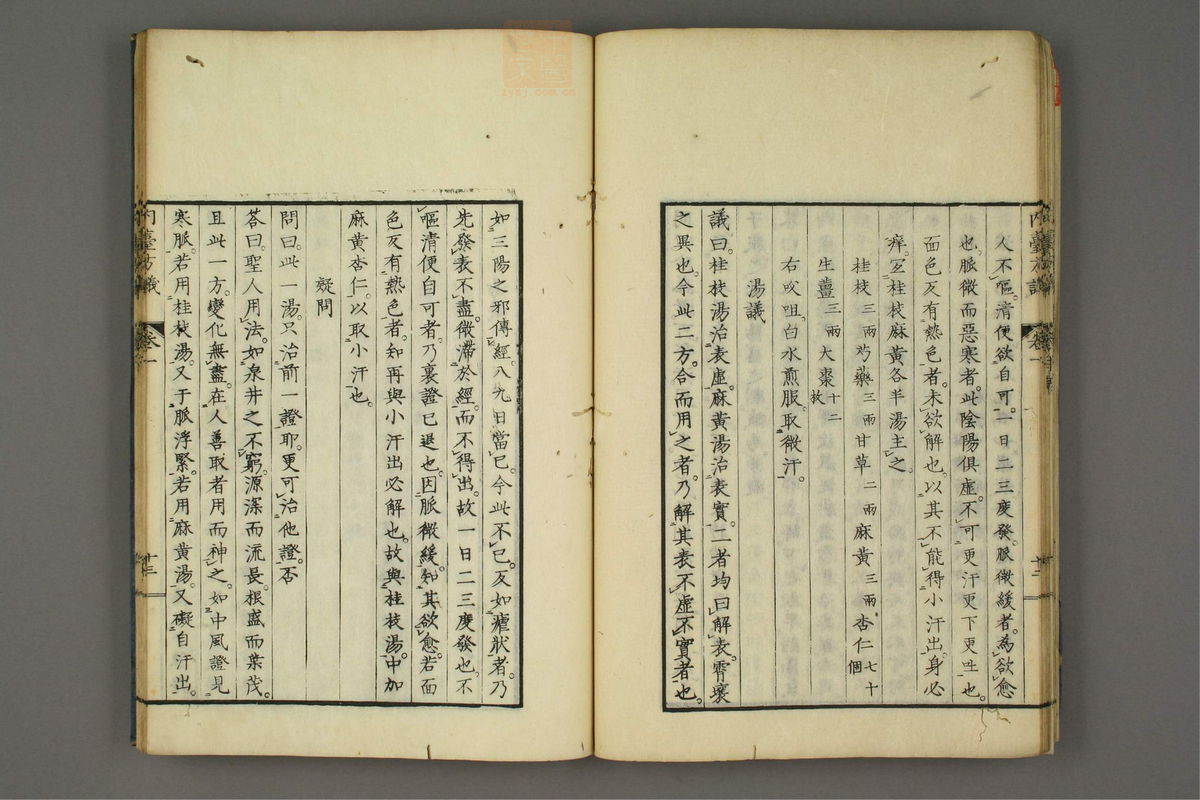 人不嘔。清便欲自可。一日二三度發。脈微緩者。為欲愈
也。脈微而惡寒者。此陰陽俱虛。不可更汗更下更吐也。
面色反有熱色者。未欲解也。以其不能得小汗出。身必
痒。宜桂枝麻黃各半湯主之。
桂枝三兩芍藥三兩甘草二兩麻黃三兩杏仁七十個
生薑三兩大棗十二枚
右㕮咀。白水煎服。取微汗。
湯議
議曰。桂枝湯治表虛。麻黃湯治表實。二者均曰解表。霄壤
之異也。今此二方。合而用之者。乃解其表不虛不實者也。
內臺方議 卷一 十三
如三陽之邪傳經。八九日當已。今此不已。反如瘧狀者。乃
先發表不盡。微滯於經。而不得出。故一日二三度發也。不
嘔清便自可者。乃裏證已退也。因脈微緩。知其欲愈。若面
色反有熱色者。知再與小汗出必解也。故與桂枝湯中加
麻黃杏仁。以取小汗也。
疑問
問曰。此一湯。只治前一證耶。更可治他證否
荅曰。聖人用法。如泉井之不窮。源深而流長。根盛而葉茂。
且此一方。變化無盡。在人善取者用而神之。如中風證見
寒脈。若用桂枝湯。又于脈浮緊。若用麻黃湯。又礙自汗出。
內臺方議 卷一 十三
zysj.com.cn